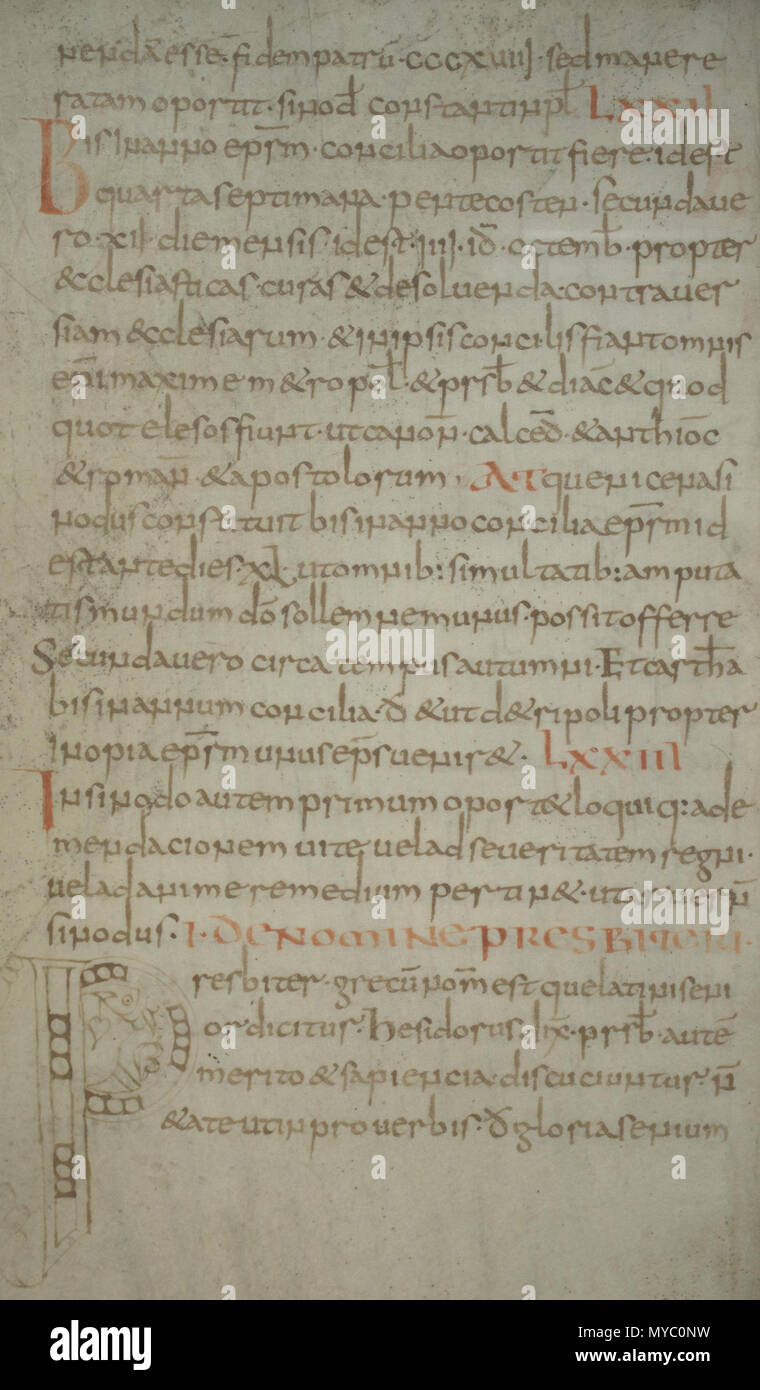 nendā esse fidem patrū · cccxviii · sed manere
ratam oportit · sinod constantinpl LXXII
Bis in anno epsm · concilia oportit fiere · id est
quarta septimana · pentecosten · secunda ve
ro · xii · diem ensis · id est · iiii · id · octemb · propter
ecclesiasticas · curas & desoluenda · contrauer
siam ecclesiarum · & in ipsis concilis fiant omnis
maxime m&ropol · & prsb & diac & quod
quot elesos fiunt · ut canon · calced · & anthioc
& roman · & apostolorum · At que nicena si
nodus constituit bis in anno concilia epsm id
est ante dies · xl · ut omnib: simultatib: amputa
tis mundum dō sollemne munus · possit offerre
Secunda vero circa tempus autumni · Et cartha
bis in annum concilia · & ut d&ripoli propter
inopia epsm unus eps ueni&· LXXIII
In sinodo autem primum oport& loqui q: ad e
mendacionem uite uel ad seueritatem regni ·
uel ad anime remedium pertin& · ut
sinodus · I · DE NOMINE PRESBITERI ·
Presbiter · grecū nom̄ est que latini seni
or dicitur · hesidorus · dix · prsb · autē
merito & sapiencia · discuciuntur · n̄
&ate ut in prouerbis · gloria senium
alamy
Image ID: MYC0NW
www.alamy.com